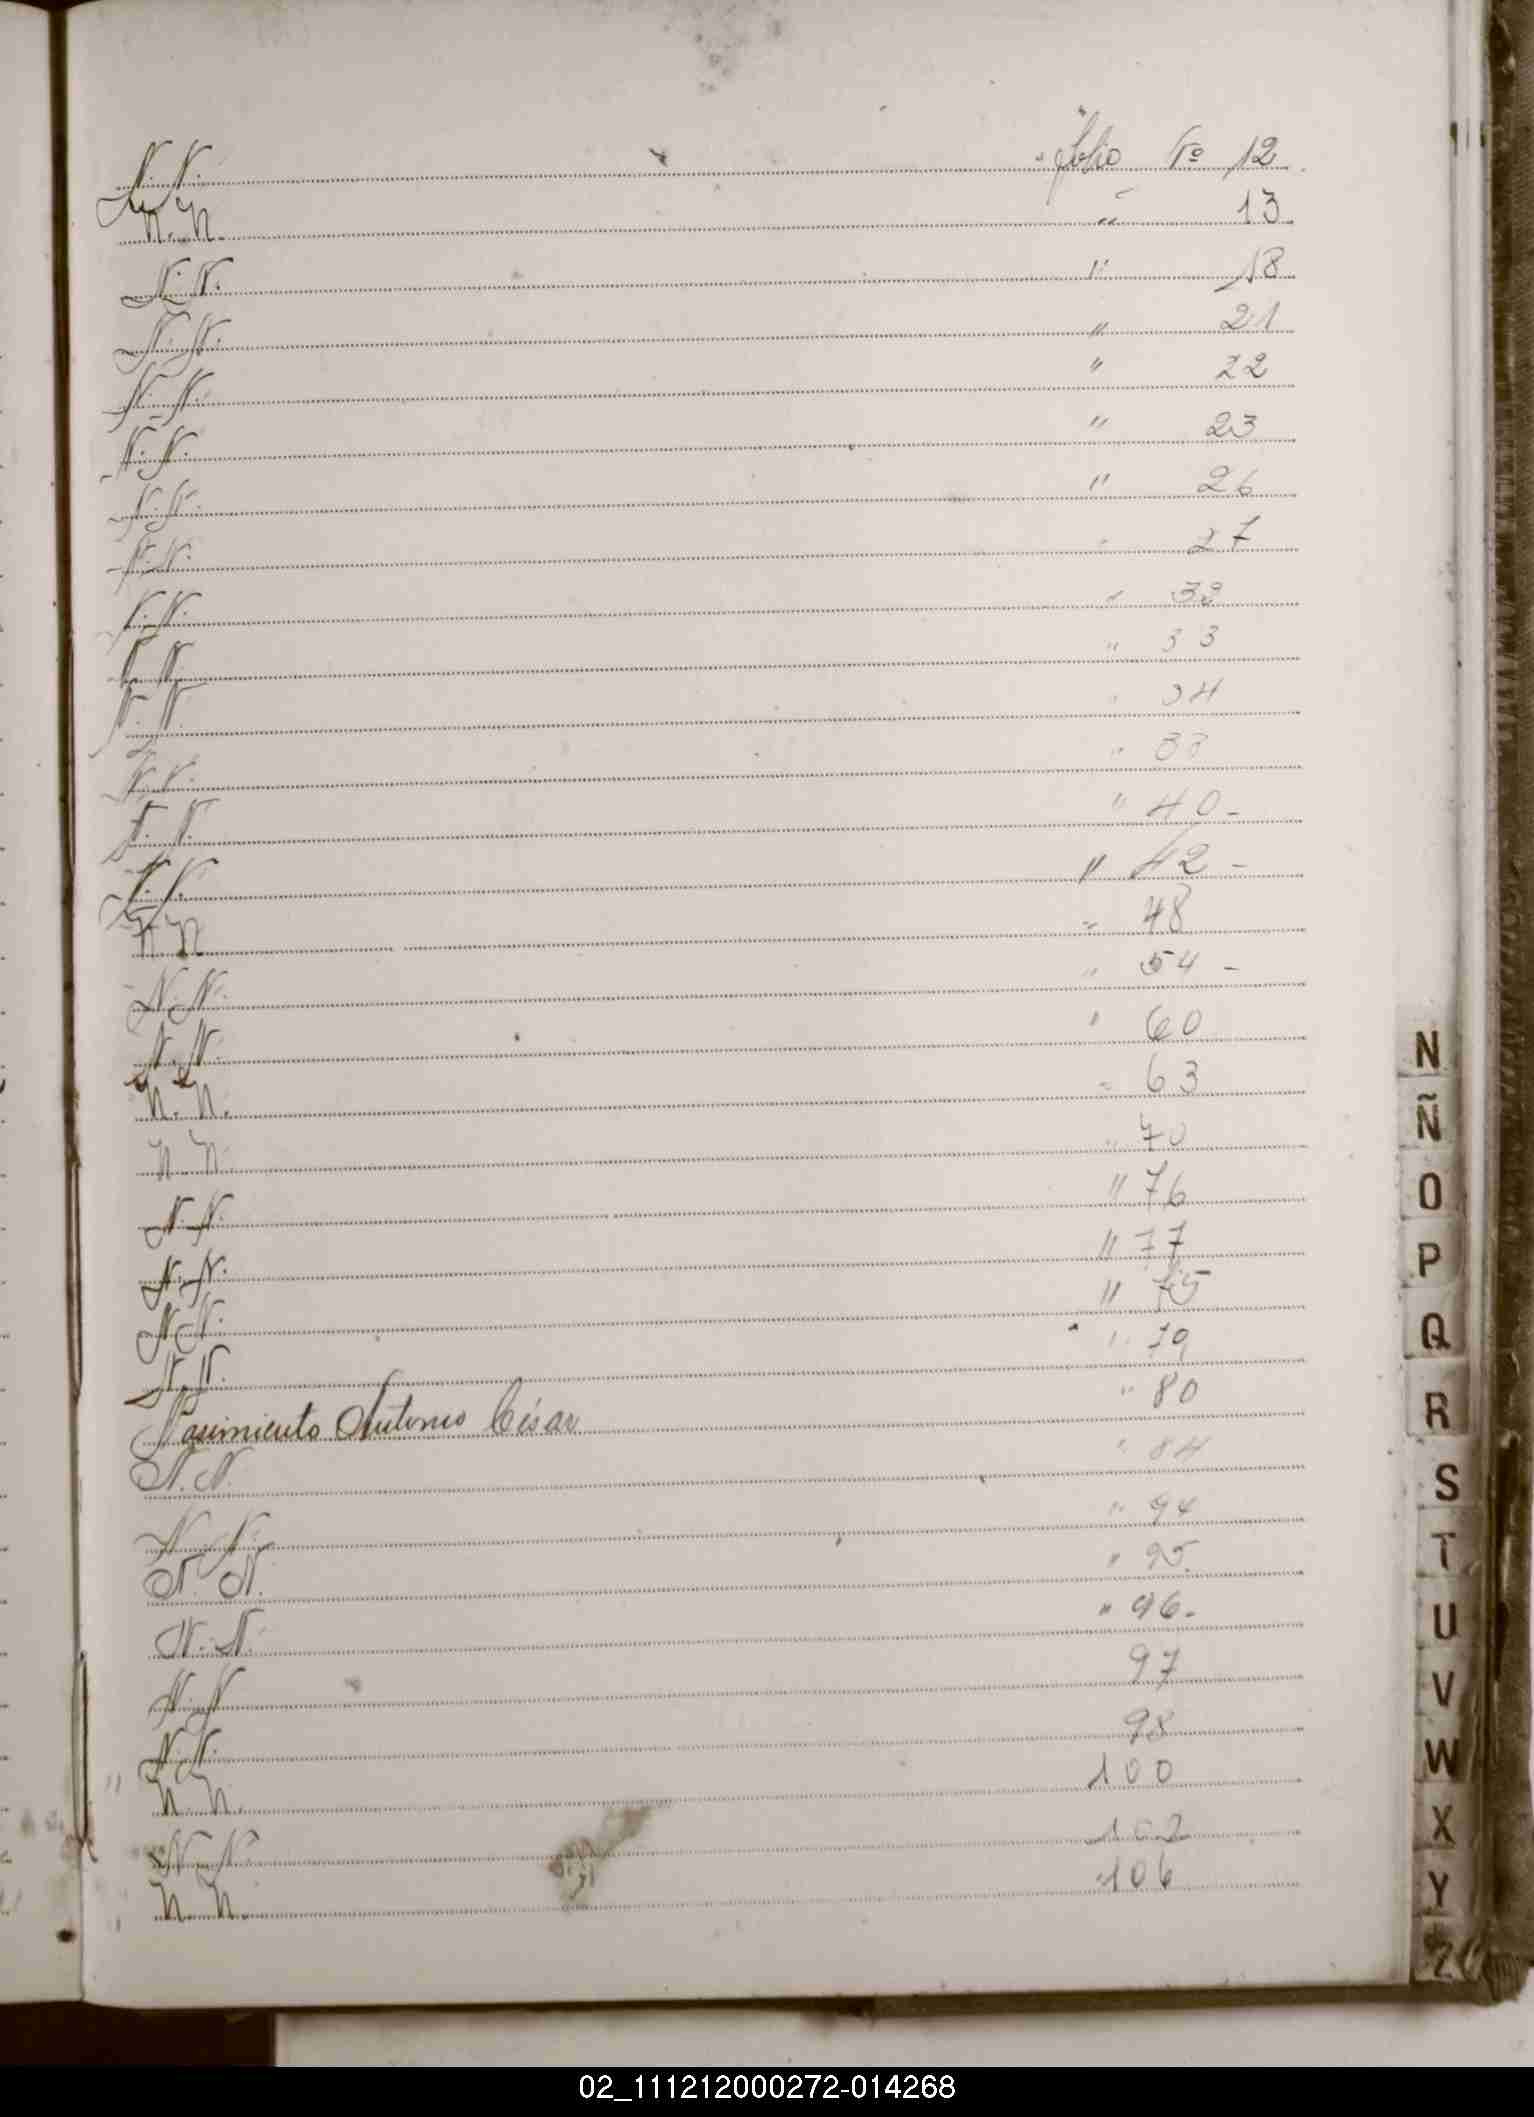 N. N. " folio Nº 12
N. N. " 13
N. N. " 18
N. N. " 21
N. N. " 22
N. N. " 23
N. N. " 26
N. N. " 27
N. N. " 32
N. N. " 33
N. N. " 34
N. N. "
N. N. " 40 -
N. N. " 42 -
N N " 48
N. N. " 54 -
N. N. " 60
N. N. " 63
N. N. " 70
N. N. " 76
N. N. " 77
N. N. " 75
N. N. " 79
Nacimiento Antonio César " 80
N. N. " 84
N. N. " 94
N. N. " 95
N. N. " 96.
N. N. 97
N. N. 98
N. N. 100
N. N. 102
N. N. 106
N
Ñ
O
P
Q
R
S
T
U
V
W
X
Y
Z
02_111212000272-014268